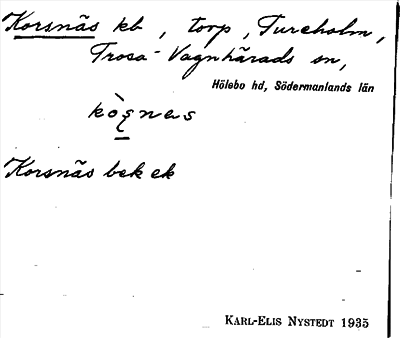 Korsnäs kb, torp, Tureholm,
Trosa-Vagnhärads sn,
Hölebo hd, Södermanlands län
Korsnäs bek ek
KARL-ELIS NYSTEDT 1935